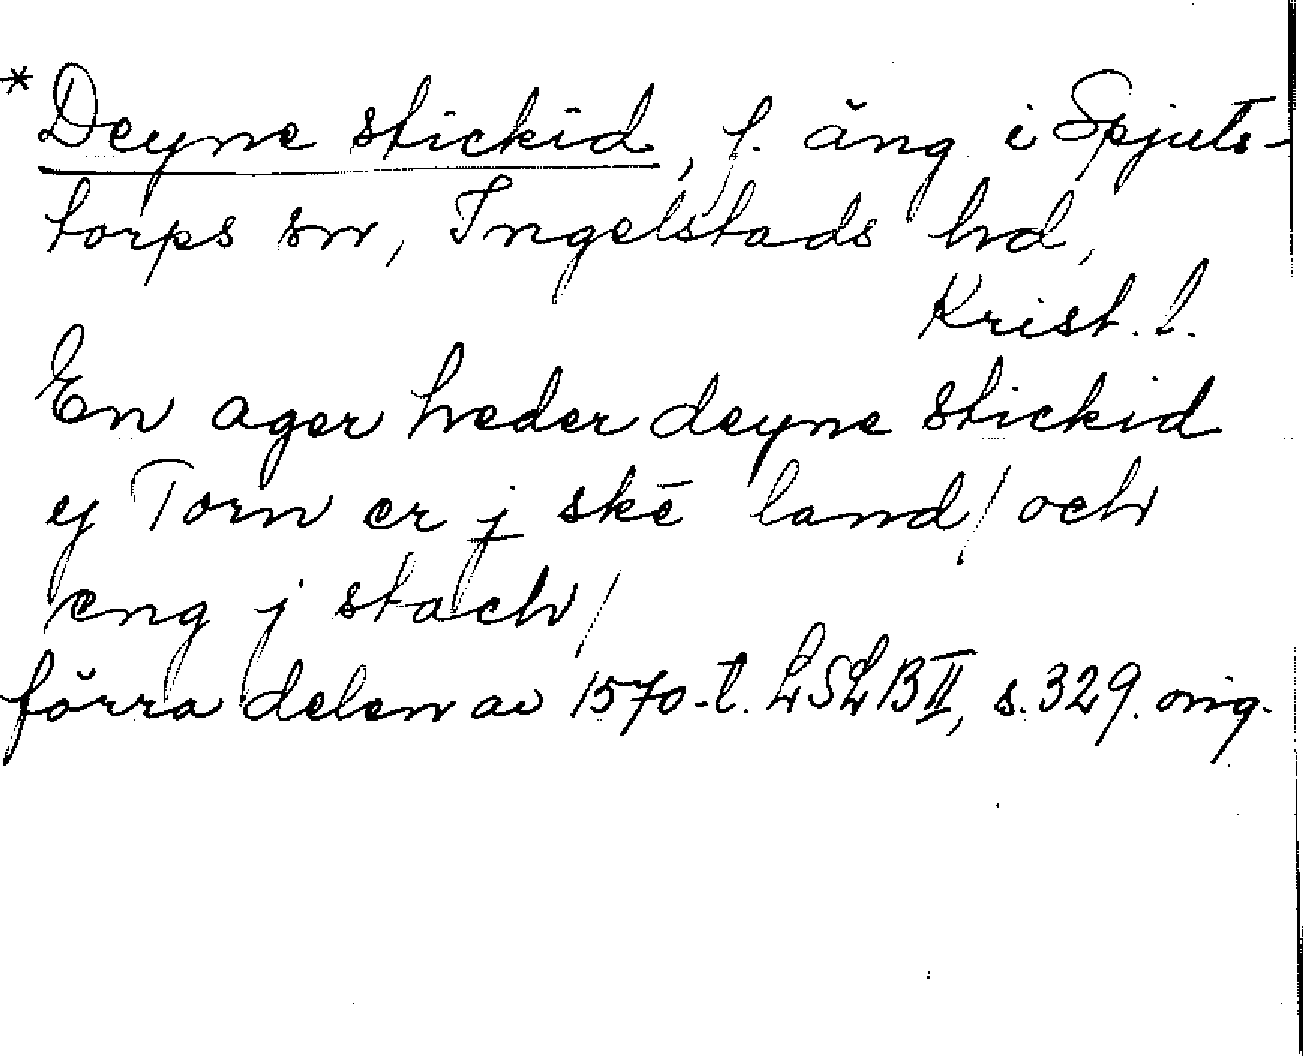 *Deyne stickid, f. äng i Spjuts-
torps sn, Ingelstads hd,
Krist. l.
En ager heder deyne stickid
ej Torn er j skē land/ och
eng j stach/
förra delen av 1570-t. LSLB II, s. 329. orig.